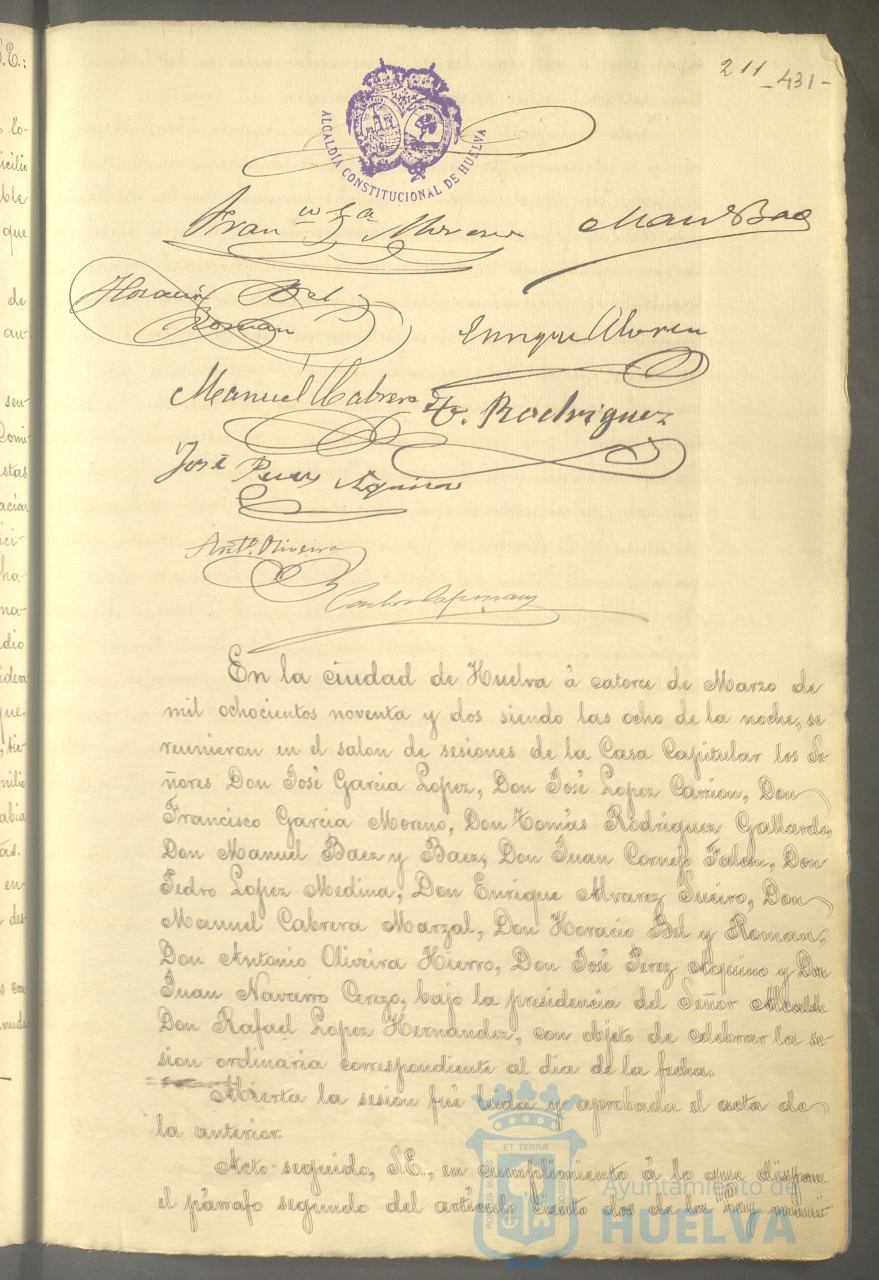 211 -431-
ALCALDÍA CONSTITUCIONAL DE HUELVA
Franco Ga Moreno Manl Baez
Horacio Bel
Roman
Enrique Alvarez
Manuel Cabrera To. Rodriguez
José Perez Aquino
Anto. Oliveira
Carlos
En la ciudad de Huelva á catorce de Marzo de
mil ochocientos noventa y dos siendo las ocho de la noche, se
reunieron en el salon de sesiones de la Casa Capitular los Se-
ñores Don José Garcia Lopez, Don José Lopez Carrion, Don
Francisco Garcia Moreno, Don Tomás Rodriguez Gallardo,
Don Manuel Baez y Baez, Don Juan Cornejo Falcon, Don
Pedro Lopez Medina, Don Enrique Alvarez Sueiro, Don
Manuel Cabrera Marzal, Don Horacio Bel y Roman,
Don Antonio Oliveira Hierro, Don José Perez Aquino y Don
Juan Navarro Cerezo, bajo la presidencia del Señor Alcalde
Don Rafael Lopez Hernandez, con objeto de celebrar la se-
sion ordinaria correspondiente al dia de la fecha.
Abierta la sesion fué leida y aprobada el acta de
la anterior.
Acto seguido, S.E., en cumplimiento á lo que dispone
el párrafo segundo del artículo ciento dos de la Ley munici-
Ayuntamiento de
HUELVA